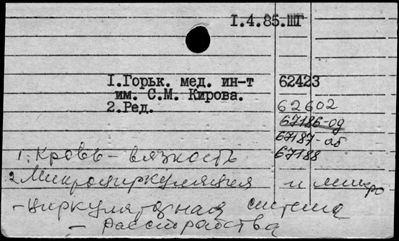 I.4.85.ШГ
I.Горьк. мед. ин-т 62423
им. С.М. Кирова.
2.Ред. 62602
67186-од
67187-аб
67188
1. Кровь - вязкость
2. Микроциркуляция и микро
- циркуляторная система
- расстройства